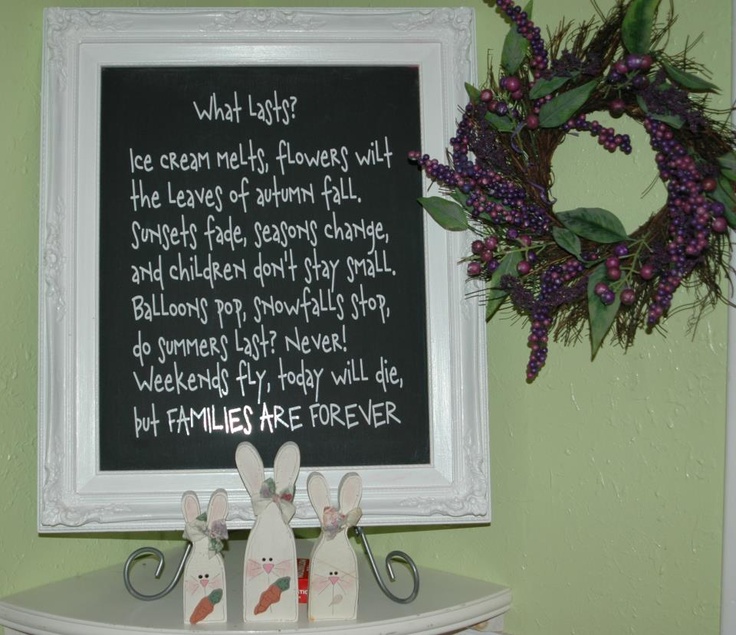 What Lasts?
Ice cream melts, flowers wilt
the leaves of autumn fall.
Sunsets fade, seasons change,
and children don't stay small.
Balloons pop, snowfalls stop,
do summers last? Never!
Weekends fly, today will die,
but FAMILIES ARE FOREVER